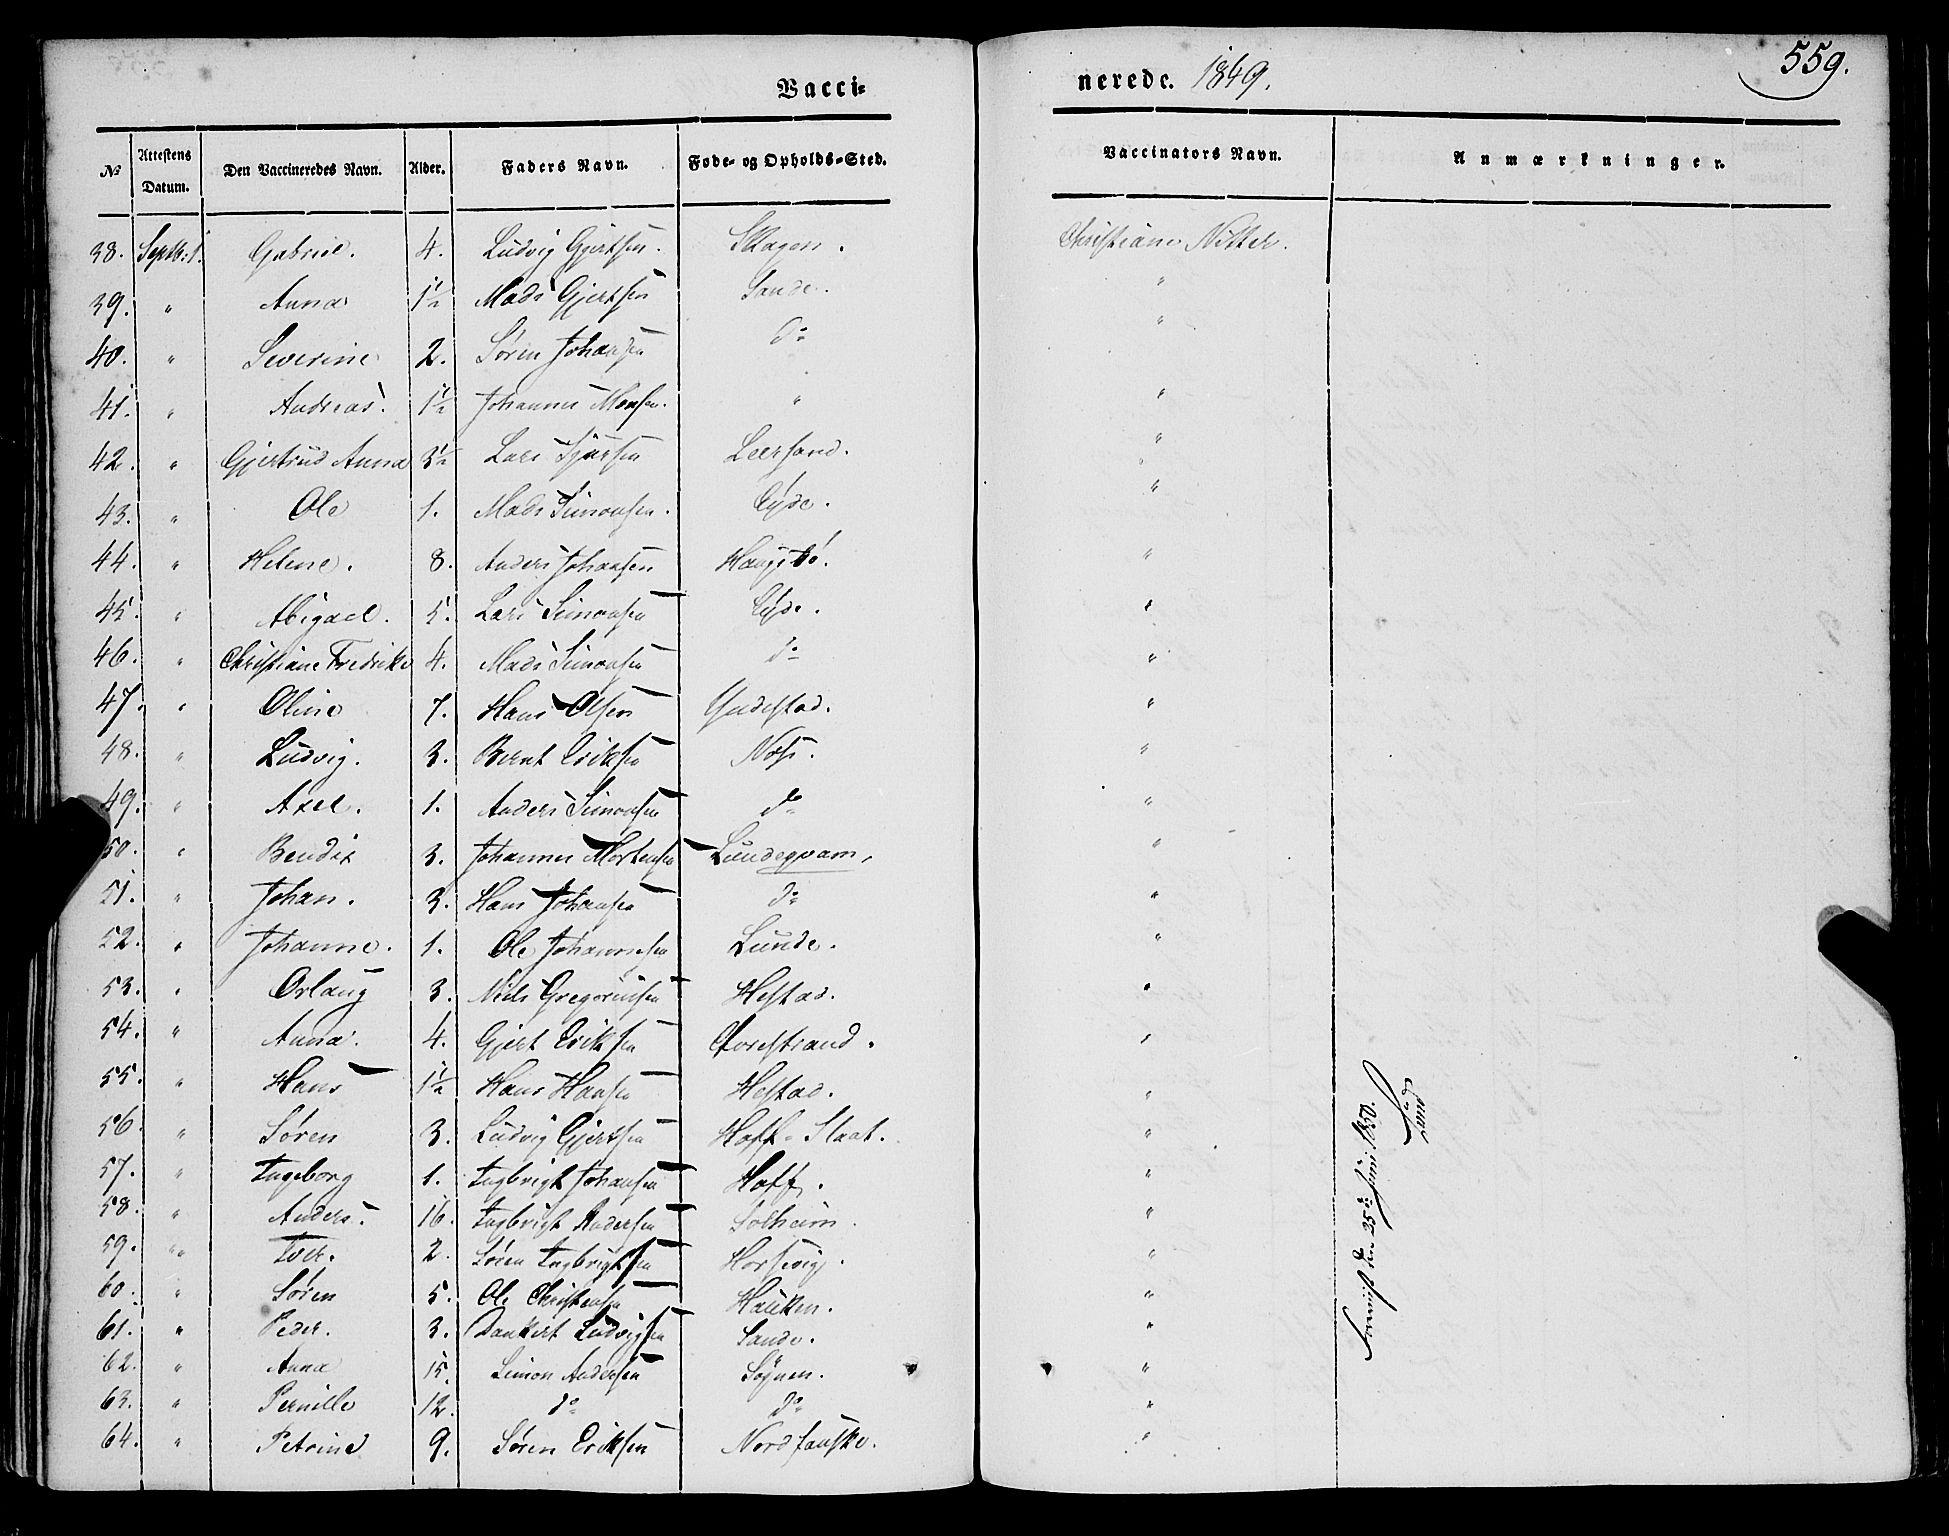 Vacci-
nerede. 1849.
559.
№ Attestens Datum. Den Vaccineredes Navn. Alder. Faders Navn. Føde- og Opholds-Sted. Vaccinators Navn. Anmærkninger.
38. Septb: 1. Gabriel. 4. Ludvig Gjertsen. Skagen. Christiane Nitter.
39. " Anna 1½ Mads Gjertsen Sande. "
40. " Severine 2. Søren Johansen do "
41. " Andreas. 1½ Johannes Monsen. " "
42. " Gjertrud Anna 3½ Lars Sjursen Leersand. "
43. " Ole 1. Mads Simonsen. Eyde. "
44. " Helene. 8. Anders Johansen Haugsbø. "
45. " Abigael. 5. Lars Simonsen Eyde. "
46. " Christiane Fredrike 4. Mads Simonsen do "
47. " Oline 7. Hans Olsen Yndestad. "
48. " Ludvig. 3. Bernt Eriksen "
49. " Axel. 1. Anders Simonsen do "
50. " Bendix 3. Johannes Mortensen Lundeqvam, "
51. " Johan. 3. Hans Johansen do "
52. " Johanne. 1. Ole Johannesen Lunde. "
53. " Orlaug 3. Niels Gregoriusen Hestad. "
54. " Anna. 4. Gjert Eriksen "
55. " Hans 1½ Hans Hansen Hestad. "
56. " Søren 3. Ludvig Gjertsen Hoff-Slaat. "
57. " Ingeborg 1. Ingbrigt Johansen Hoff. "
58. " Anders. 16. Ingbrigt Andersen Solheim. "
59. " Iver. 2. Søren Ingbrigtsen Horsevig. "
60. " Søren 5. Ole Christensen Hauken. "
61. " Peder. 3. Dankert Ludvigsen Sande. "
62. " Anna 15. Simon Andersen Søgnen. "
63. " Pernille 12. do do "
64. " Petrine 9. Søren Eriksen Nordfauske. "
den 25de Juni 1850.
Lund